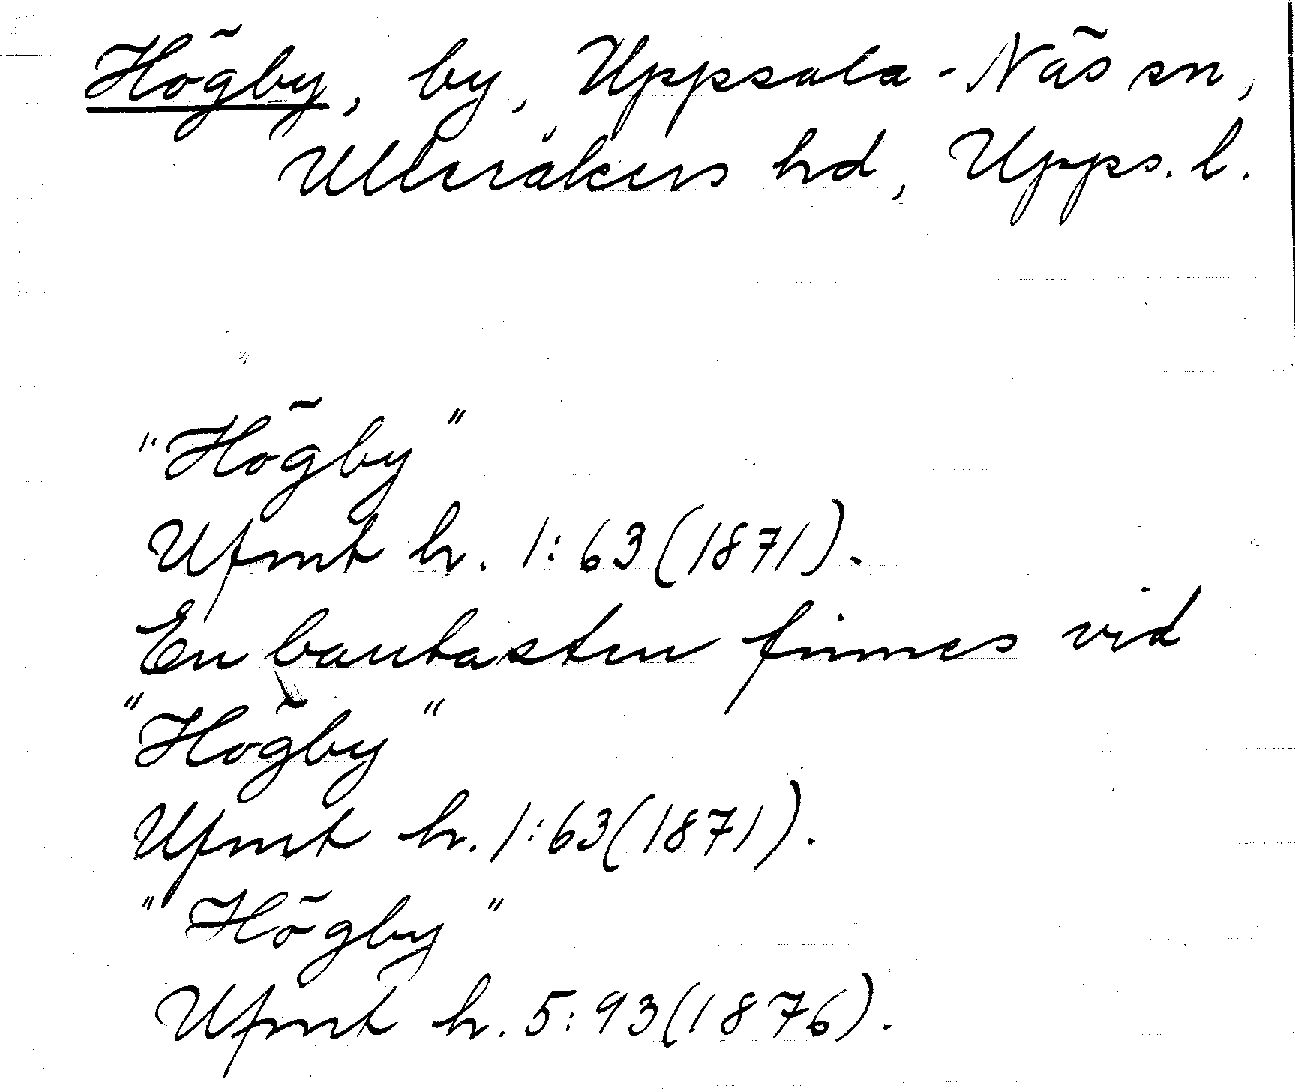 Högby, by, Uppsala-Näs sn,
Ulleråkers hd, Upps. l.
"Högby"
Ufmt h. 1:63(1871).
En bautasten finnes vid
"Högby"
Ufmt h. 1:63(1871).
"Högby"
Ufmt h. 5:93(1876).